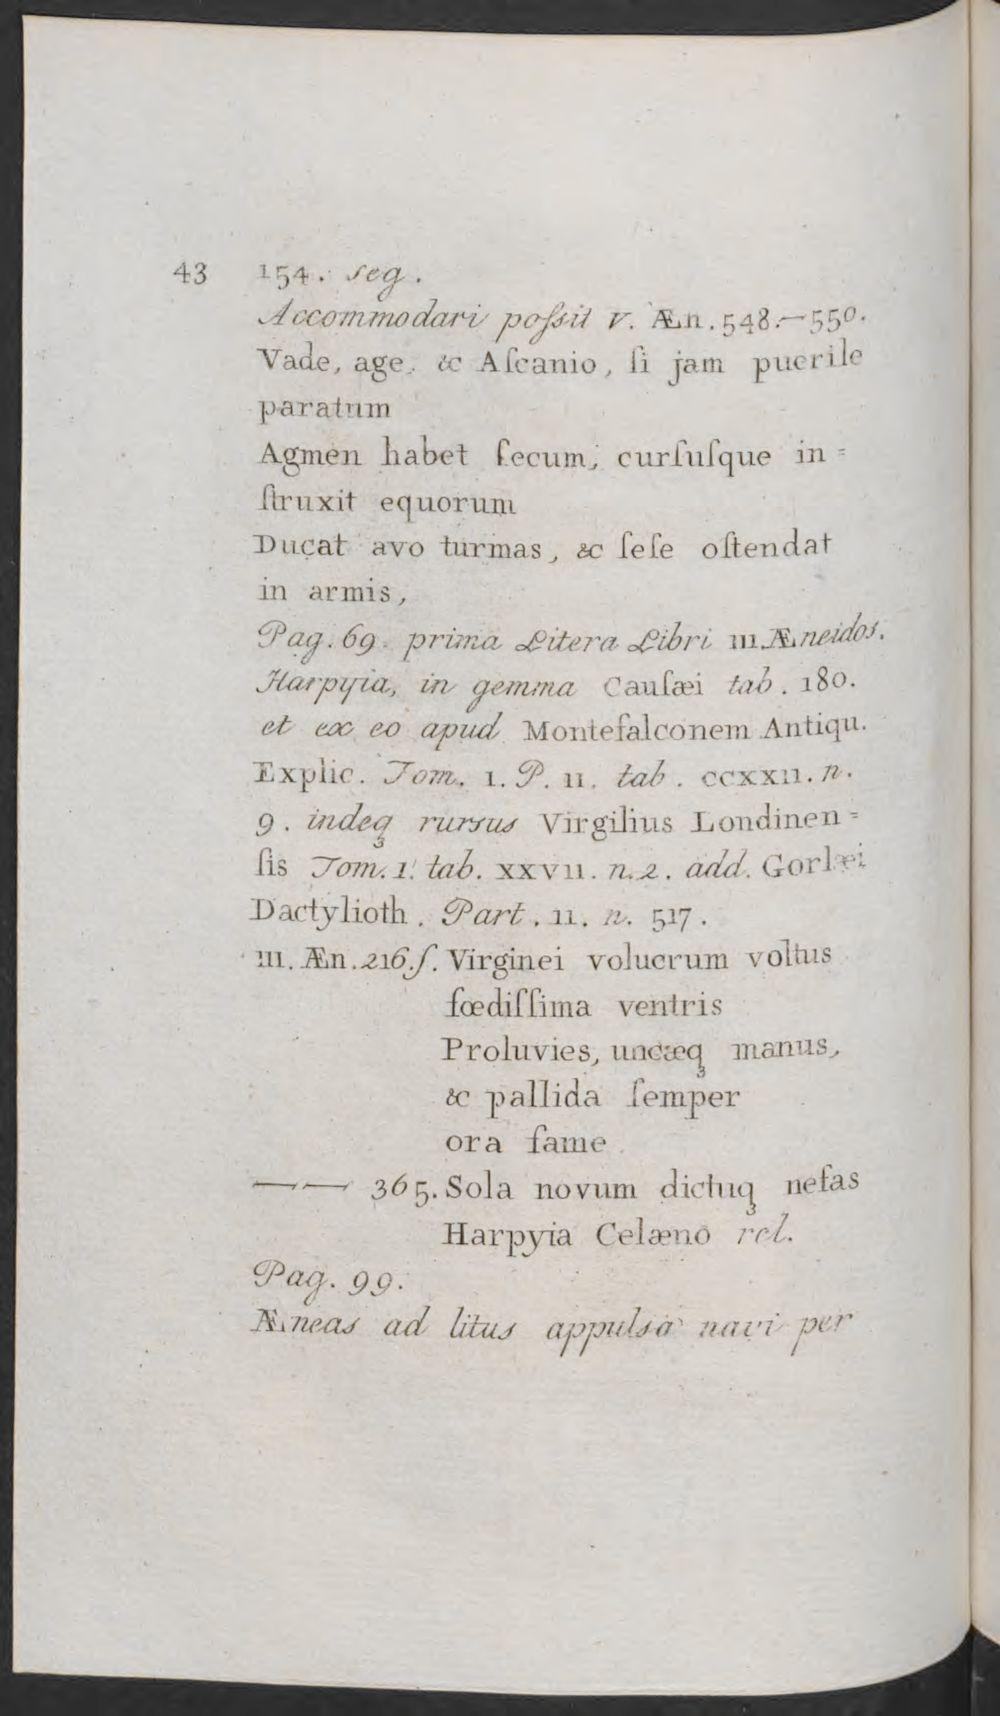 43 154. seq.
Accommodari poſsit V. Æn. 548.—550.
Vade, age, &c Aſcanio, ſi jam puerile
paratum
Agmen habet ſecum, curſuſque in=
ſtruxit equorum
Ducat avo turmas, &c ſeſe oſtendat
in armis,
Pag. 69. prima Litera Libri III Æneidos.
Harpyia, in gemma Cauſæi tab. 180.
et ex eo apud Montefalconem Antiqu.
Explic. Tom. I. P. II. tab. CCXXII. n.
9. indeqꝫ rursus Virgilius Londinen=
ſis Tom. I. tab. XXVII. n. 2. add. Gorlæi
Dactylioth. Part. II. n. 517.
III. Æn. 216. ſ. Virginei volucrum voltus
fœdiſſima ventris
Proluvies, uncæqꝫ manus,
&c pallida ſemper
ora fame
—— 365. Sola novum dictuqꝫ nefas
Harpyia Celæno rel.
Pag. 99.
Æneas ad litus appulsa navi per